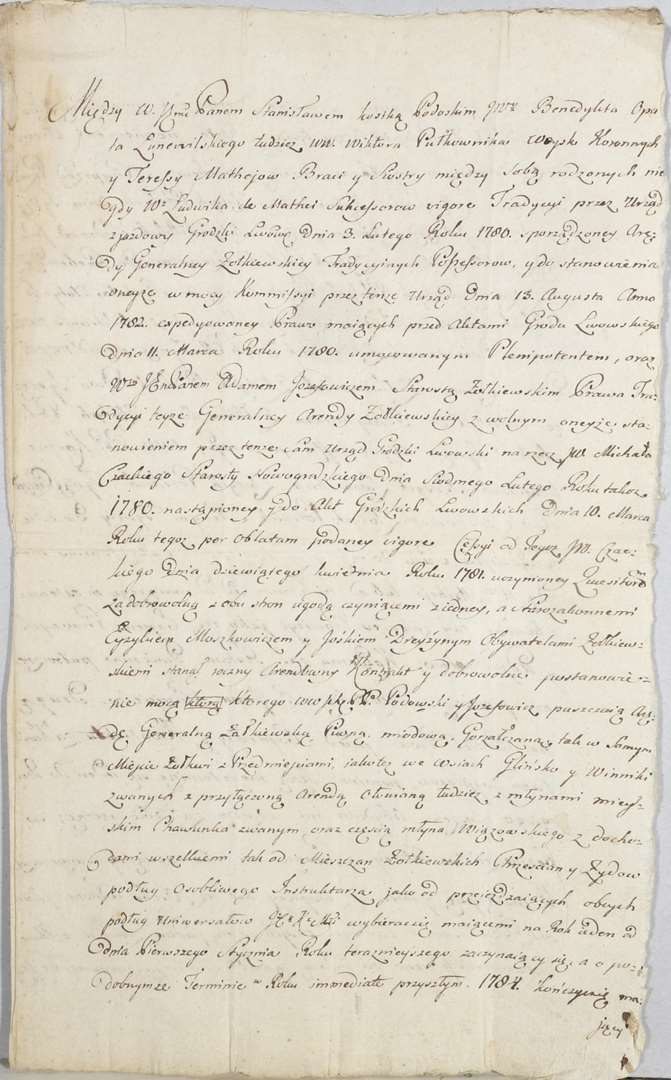 Między W. Jmć Panem Stanisławem Kostką Podoskim JWW Benedykta Opa-
ta Lunewilskiego tudziesz WW. Wiktora Pułkownika Woysk Koronnych
y Teressy Mathejow Braci y Siostry między sobą rodzonych nie-
gdy Ludwika de Mathei Sukcessorow vigore Tradycyi przez Urząd
zjazdowy Grodzki Lwow: dnia 3. Lutego Roku 1780. sporządzoney Arę-
dy Generalney Żołkiewskiey Tradycyinych Possessorow, y do stanowienia
oneyże w mocy Kommissyi przez tenże Urząd Dnia 13. Augusta Anno
1782. expedyowaney Prawo maiących przed Aktami Grodu Lwowskiego
dnia 11. Marca Roku 1780. umocowanym Plenipotentem, oraz
Panem Adamem Jozefowiczem Starostą Żołkiewskim Prawa Tra-
dycyi teyże Generalney Arendy Żołkiewskiey z wolnym oneyże sta-
nowieniem przez tenże Sam Urząd Grodzki Lwowski na rzecz JW. Michała
Czackiego Starosty Nowogrodzkiego dnia Siodmego Lutego Roku takoż
1780. nastąpioney y do Akt Grodzkich Lwowskich Dnia 10. Marca
Roku tegoż per Oblatam podaney vigore Cessyi od Tegoż JW. Czac-
kiego Dnia dziewiątego kwietnia Roku 1781. uczynioney
za dobrowolną z obu stron ugodą czyniącemi z iedney, a Starozakonnemi
Moszkowiczem y Joskiem Obywatelami Żołkiew-
skiemi stanął roczny Arendowny Kontrakt y dobrowolne postanowie-
nie mocą którego WW Podowski y Jozefowicz puszczaią Arę-
dę Generalną Żołkiewską Piwną, miodową, Gorzałczaną, tak w Samym
Mieście Żołkwi z Przedmieściami, iakoteż we wsiach Glińsko y Winniki
zwanych z przyłączoną Arendą tudziesz z młynami miey-
skim zwanym oraz częścią młyna Wiązowskiego z docho-
dami wszelkiemi tak od Mieszczan Żołkiewskich Chrześcian y Żydow
podług osobliwego Instruktarza, iako od przejeżdzaiących obcych
podług Uniwersałow wybierać się maiącemi na Rok ieden od
dnia Pierwszego Stycznia Roku teraznieyszego zaczynaiący się, a o po-
dobnymże Terminie w Roku immediate przyszłym 1784. kończyć się ma-
iący